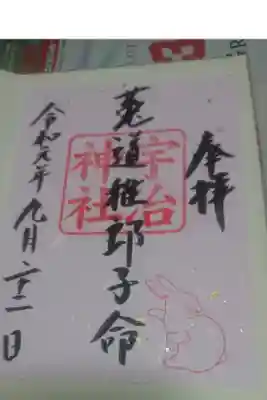 奉拝
菟道稚郎子命
宇治神社
令和元年九月 日